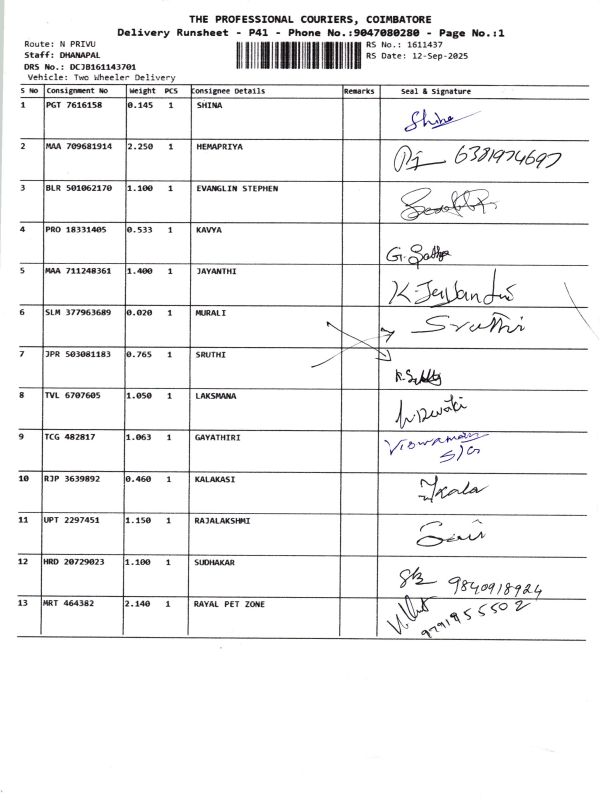 THE PROFESSIONAL COURIERS, COIMBATORE
Delivery Runsheet - P41 - Phone No.:9047080280 - Page No.:1
Route: N PRIVU RS No.: 1611437
Staff: DHANAPAL RS Date: 12-Sep-2025
DRS No.: DCJB161143701
Vehicle: Two Wheeler Delivery
S No Consignment No Weight PCS Consignee Details Remarks Seal & Signature
1 PGT 7616158 0.145 1 SHINA
Shina
2 MAA 709681914 2.250 1 HEMAPRIYA
6381974697
3 BLR 501062170 1.100 1 EVANGLIN STEPHEN
4 PRO 18331405 0.533 1 KAVYA
5 MAA 711248361 1.400 1 JAYANTHI
6 SLM 377963689 0.020 1 MURALI
Sruthi
7 JPR 503081183 0.765 1 SRUTHI
8 TVL 6707605 1.050 1 LAKSMANA
9 TCG 482817 1.063 1 GAYATHIRI
10 RJP 3639892 0.460 1 KALAKASI
11 UPT 2297451 1.150 1 RAJALAKSHMI
12 HRD 20729023 1.100 1 SUDHAKAR
9840918924
13 MRT 464382 2.140 1 RAYAL PET ZONE
9791955502